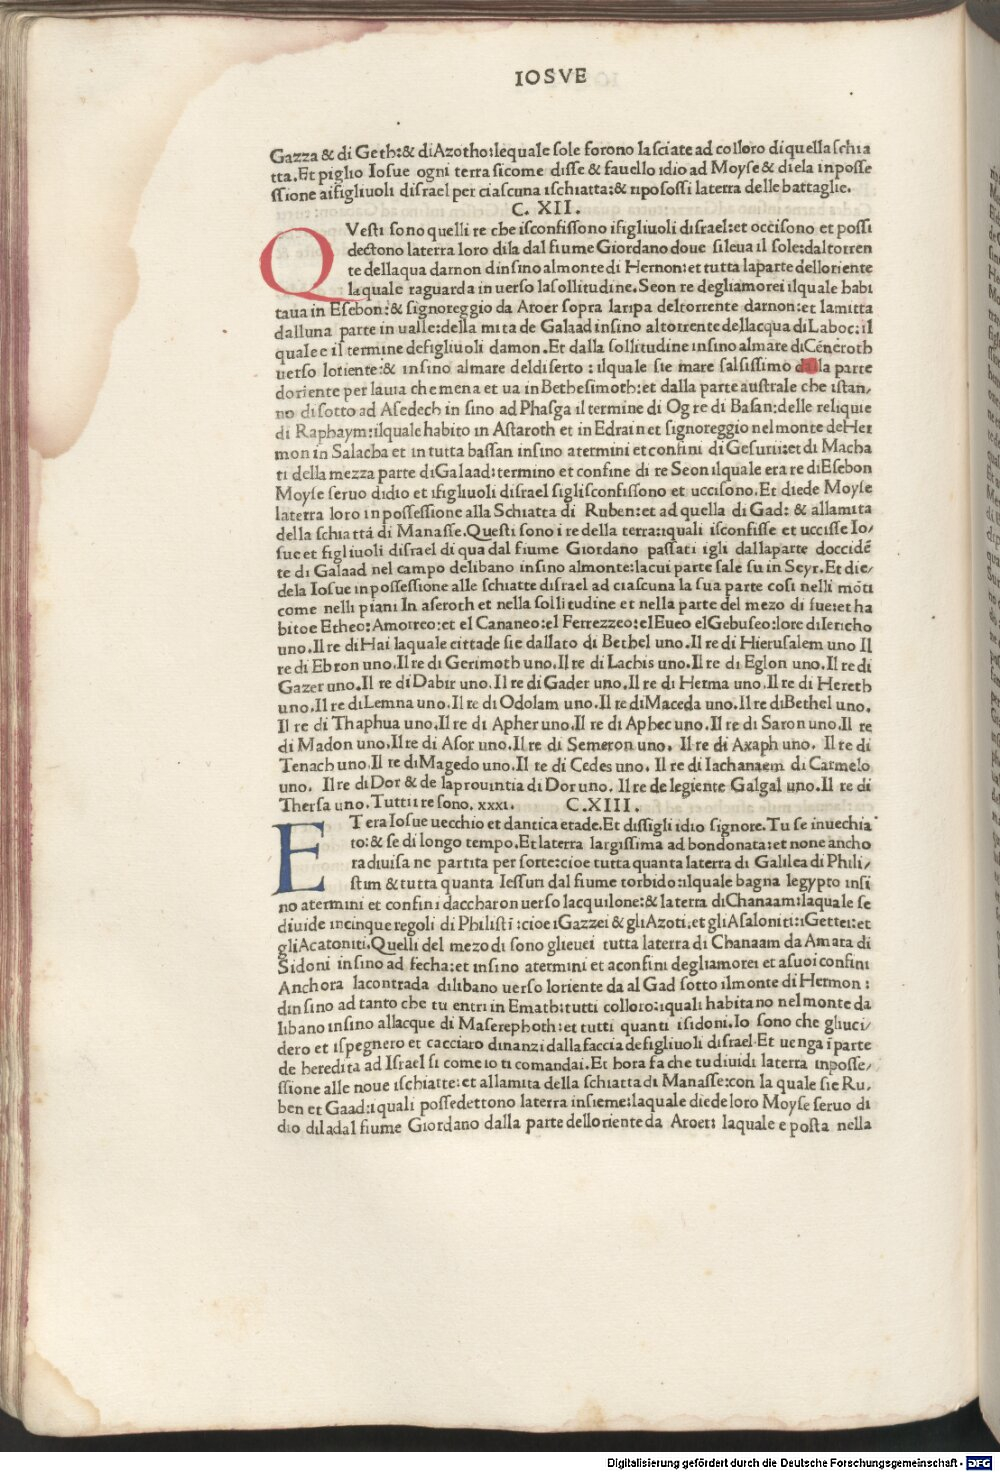 IOSVE
Gazza & di Geth:& diAzotho:lequale sole forono lasciate ad colloro di quella schia
tta.Et piglio Iosue ogni terra sicome disse & fauello idio ad Moyse & diela in posse
ssione aifigliuoli disrael per ciascuna ischiatta:& riposossi laterra delle battaglie.
C. XII.
QVesti sono quelli re che isconfissono ifigliuoli disrael:et occisono et possi
dectono laterra loro dila dal fiume Giordano doue sileua il sole:daltorren
te dellaqua darnon dinsino almonte di Hernon:et tutta laparte delloriente
laquale raguarda in uerso lasollitudine.Seon re degliamorei ilquale habi
taua in Esebon:& signoreggio da Aroer sopra laripa deltorrente darnon:et lamitta
dalluna parte in ualle:della mita de Galaad insino altorrente dellacqua di Laboc:il
quale e il termine defigliuoli damon.Et dalla sollitudine insino almare diCéneroth
uerso loriente:& insino almare deldiserto : ilquale sie mare salsissimo dalla parte
doriente per lauia che mena et ua in Bethesimoth:et dalla parte australe che istan,
no di sotto ad Asedech in sino ad Phasga il termine di Og re di Basan:delle reliquie
di Raphaym:ilquale habito in Astaroth et in Edrain et signoreggio nel monte deHer
mon in Salacha et in tutta bassan insino atermini et confini di Gesurii:et di Macha
ti della mezza parte diGalaad:termino et confine di re Seon ilquale era re diEsebon
Moyse seruo didio et ifigliuoli disrael siglisconfissono et uccisono.Et diede Moyse
laterra loro in possessione alla Schiatta di Ruben:et ad quella di Gad: & allamita
della schiatta di Manasse.Questi sono i re della terra:iquali isconfisse et uccisse Io/
sue et figliuoli disrael di qua dal fiume Giordano passati igli dallaparte doccidē
te di Galaad nel campo delibano insino almonte:lacui parte sale su in Seyr.Et die/
dela Iosue inpossessione alle schiatte disrael ad ciascuna la sua parte cosi nelli mōti
come nelli piani In aseroth et nella sollitudine et nella parte del mezo di fue:et ha
bitoe Etheo:Amorreo:et el Cananeo:el Ferrezzeo:elEueo elGebuseo:lore diIericho
uno.Il re di Hai laquale cittade sie dallato di Bethel uno.Il re di Hierusalem uno Il
re di Ebron uno.Il re di Gerimoth uno.Il re di Lachis uno.Il re di Eglon uno.Il re di
Gazer uno.Il re di Dabir uno.Il re di Gader uno.Il re di Herma uno.Il re di Hereth
uno.Il re diLemna uno.Il re di Odolam uno.Il re diMaceda uno.Il re diBethel uno.
Il re di Thaphua uno.Il re di Apher uno.Il re di Aphec uno.Il re di Saron uno.Il re
di Madon uno.Il re di Asor uno.Il re di Semeron uno. Il re di Axaph uno. Il re di
Tenach uno.Il re diMagedo uno.Il re di Cedes uno. Il re di Iachanaem di Carmelo
uno. Il re di Dor & de laprouintia di Dor uno. Il re de legiente Galgal uno. Il re di
Thersa uno.Tutti i re sono. xxxi. C.XIII.
ET era Iosue uecchio et dantica etade.Et dissigli idio signore.Tu se inuechia
to:& se di longo tempo.Et laterra largissima ad bondonata:et none ancho
ra diuisa ne partita per sorte:cioe tutta quanta laterra di Galilea di Phili/
stim & tutta quanta Iessuri dal fiume torbido:ilquale bagna legypto insi
no atermini et confini daccharon uerso lacquilone:& laterra diChanaam:laquale se
diuide incinque regoli di Philistī :cioe iGazzei & gliAzoti.et gliAsaloniti:iGettei:et
gliAcatoniti.Quelli del mezo di sono glieuei tutta laterra di Chanaam da Amara di
Sidoni insino ad fecha:et insino atermini et aconfini degliamorei et asuoi confini
Anchora lacontrada dilibano uerso loriente da al Gad sotto ilmonte di Hermon :
dinsino ad tanto che tu entri in Emath:tutti colloro:iquali habitano nel monte da
libano insino allacque di Maserephoth:et tutti quanti isidoni.Io sono che gliuci/
dero et ispegnero et cacciaro dinanzi dalla faccia defigliuoli disrael.Et uenga ī parte
de heredita ad Israel si come io ti comandai.Et hora fa che tu diuidi laterra inposse/
ssione alle noue ischiatte:et allamita della schiatta di Manasse:con la quale sie Ru,
ben et Gaad:iquali possedettono laterra insieme:laquale diede loro Moyse seruo di
dio dila dal fiume Giordano dalla parte delloriente da Aroer: laquale e posta nella
Digitalisierung gefördert durch die Deutsche Forschungsgemeinschaft - DFG